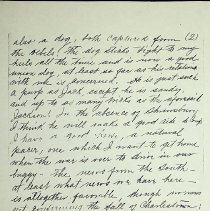 also a dog, both captured from (2)
the Rebels! the dog sticks tight to my
heels all the time and is now a good
union dog, at least so far as his relations
with me is concerned. He is just such
a pup as Jack except he is sandy,
and up to as many tricks as the aforesaid
Jackson! In the absence of
I think he will make a good
I have a good a natural
pacer, one which I want to get home
when the war is over to drive in our
buggy - the news from the South -
at least what news we hear here
is altogether favorable though no news
yet confirming the fall of Charleston;